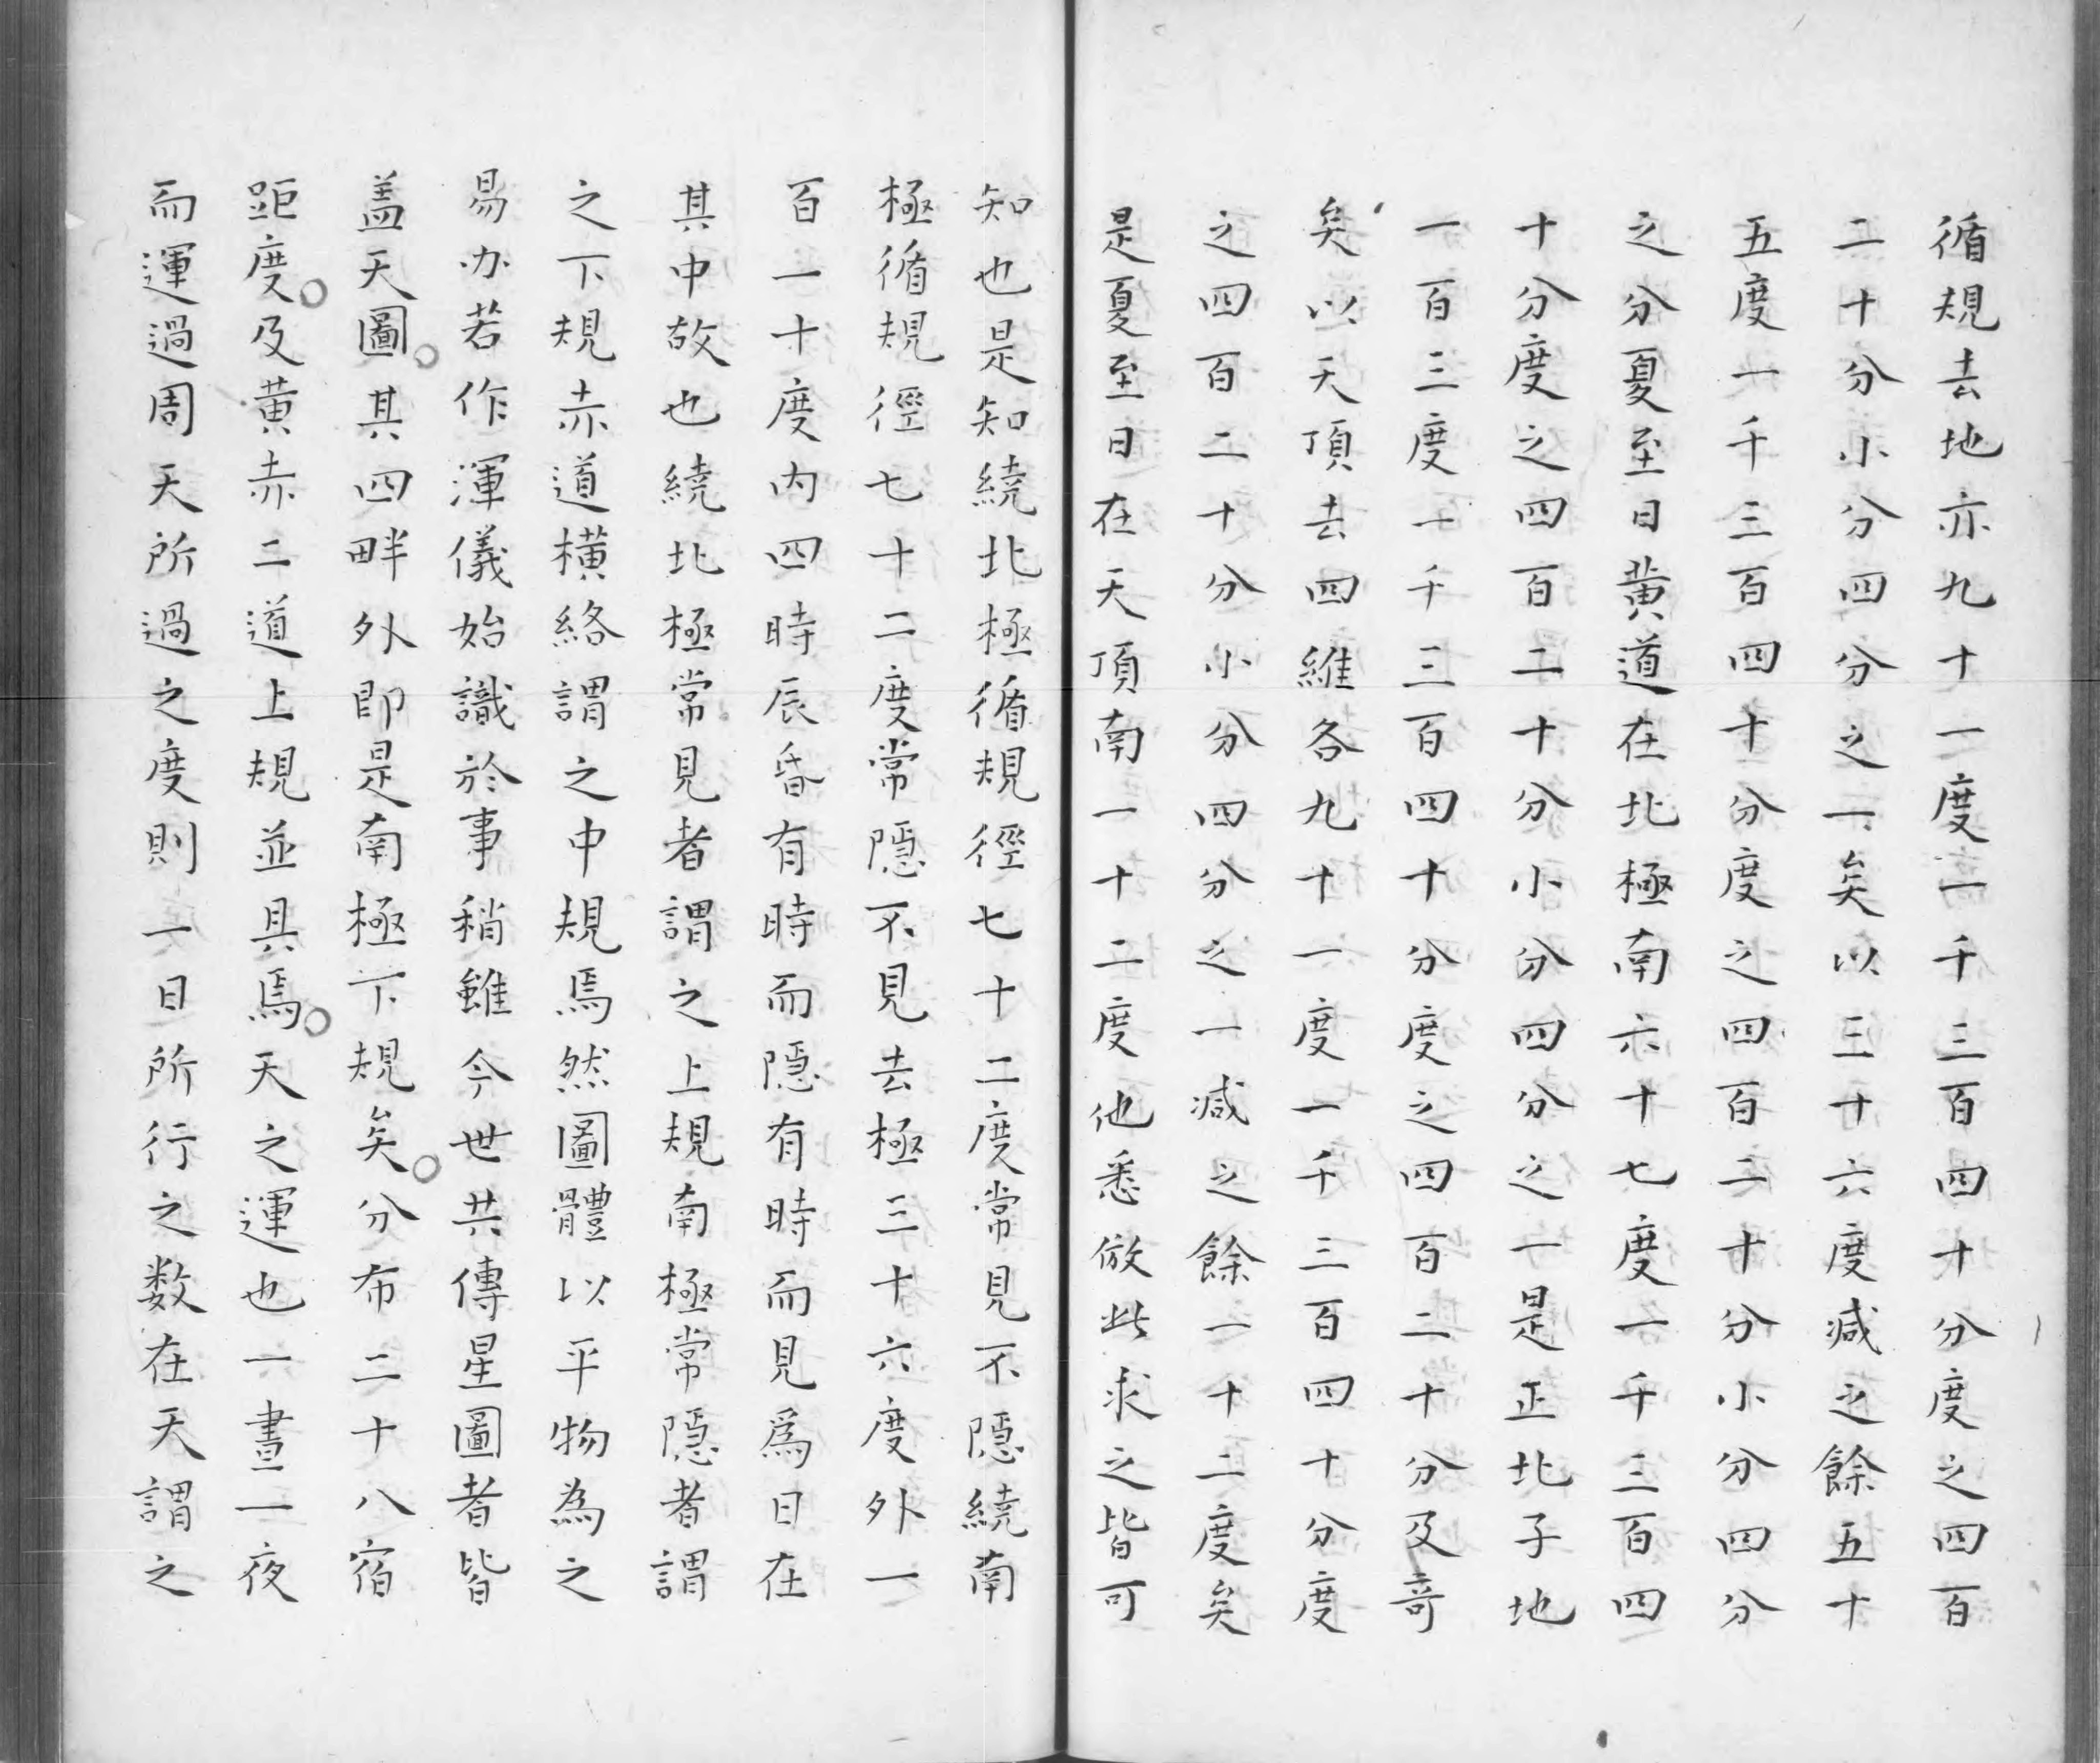 循規去地亦九十一度一千三百四十分度之四百
二十分小分四分之一矣以三十六度減之餘五十
五度一千三百四十分度之四百二十分小分四分
之分夏至日黄道在北極南六十七度一千三百四
十分度之四百二十分小分四分之一是正北子地
一百三度一千三百四十分度之四百二十分及竒
矣以天頂去四維各九十一度一千三百四十分度
之四百二十分小分四分之一减之餘一十二度矣
是夏至日在天頂南一十二度他悉倣此求之皆可
知也是知繞北極循規徑七十二度常見不隠繞南
極循規徑七十二度常隠不見去極三十六度外一
百一十度内四時辰昏有時而隠有時而見爲日在
其中故也繞北極常見者謂之上規南極常隠者謂
之下規赤道横絡謂之中規焉然圖體以平物為之
易办若作渾儀始識於事稍雖今世共傳星圖者皆
盖天圖其四畔外即是南極下規矣分布二十八宿
距度及黄赤二道上規並具焉天之運也一晝一夜
而運過周天所過之度則一日所行之数在天謂之